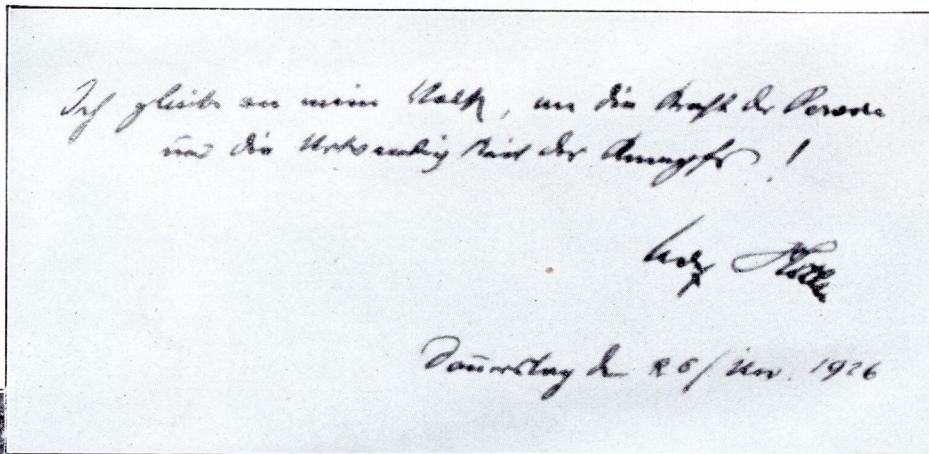 Ich glaube an mein Volk, an die Kraft der Person
und die Notwendigkeit des Kampfes!
Adolf Hitler
Donnerstag den 25/Nov. 1926